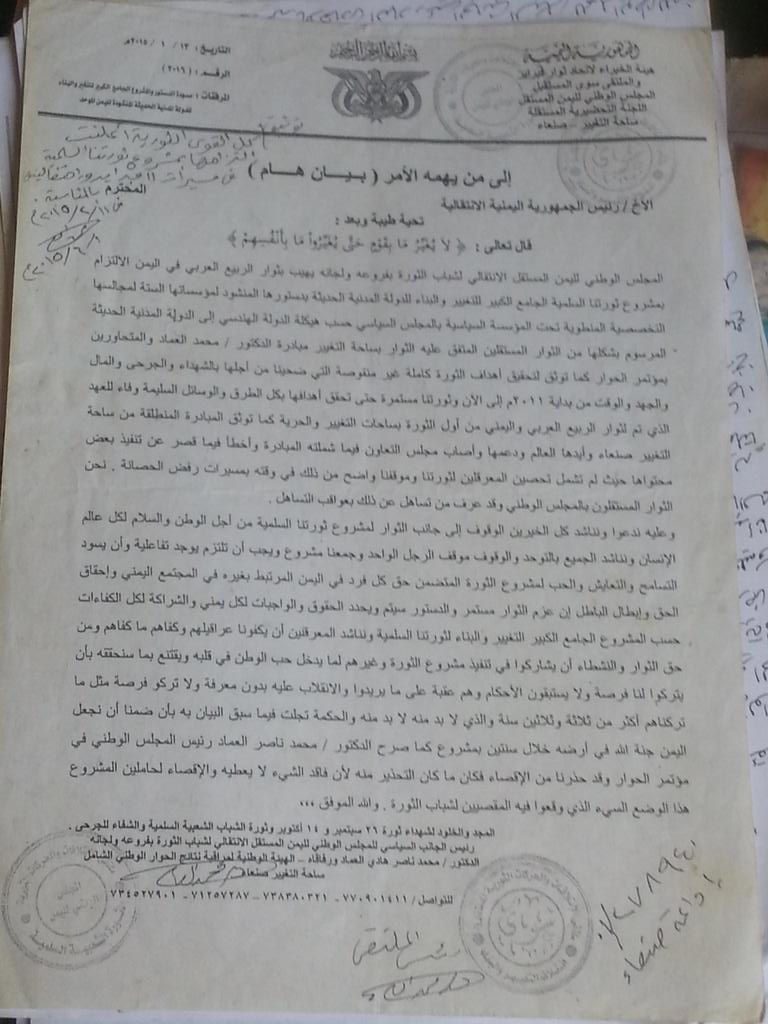 الجمهورية اليمنية
هيئة الخبراء لاتحاد ثوار فبراير
والملتقى سوى المستقبل
المجلس الوطني لليمن المستقل
اللجنة التحضيرية المستقلة
ساحة التغيير - صنعاء
بسم الله الرحمن الرحيم
التاريخ : ١٣ / ١ / ٢٠١٥م
الرقم : (٢٠١٦)
المرفقات : مسودة الدستور والمشروع الجامع الكبير للتغيير والبناء
للدولة المدنية الحديثة المنشودة لليمن الموحد
إلى من يهمه الأمر ( بيــان هــام )
الأخ / رئيس الجمهورية اليمنية الانتقالية
المحترم
تحية طيبة وبعد :
قال تعالى : ﴿ لاَ يُغَيِّرُ مَا بِقَوْمٍ حَتَّى يُغَيِّرُواْ مَا بِأَنْفُسِهِمْ ﴾
المجلس الوطني لليمن المستقل الانتقالي لشباب الثورة بفروعه ولجانه يهيب بثوار الربيع العربي في اليمن الالتزام
بمشروع ثورتنا السلمية الجامع الكبير للتغيير والبناء للدولة المدنية الحديثة بدستورها المنشود لمؤسساتها الستة لمجالسها
التخصصية المنطوية تحت المؤسسة السياسية بالمجلس السياسي حسب هيكلة الدولة الهندسي إلى الدولة المدنية الحديثة
المرسوم بشكلها من الثوار المستقلين المتفق عليه الثوار بساحة التغيير مبادرة الدكتور / محمد العماد والمتحاورين
بمؤتمر الحوار كما توثق لتحقيق أهداف الثورة كاملة غير منقوصة التي ضحينا من أجلها بالشهداء والجرحى والمال
والجهد والوقت من بداية ٢٠١١م إلى الآن وثورتنا مستمرة حتى تحقق أهدافها بكل الطرق والوسائل السليمة وفاء للعهد
الذي تم لثوار الربيع العربي واليمني من أول الثورة بساحات التغيير والحرية كما توثق المبادرة المنطلقة من ساحة
التغيير صنعاء وأيدها العالم ودعمها وأصاب مجلس التعاون فيما شملته المبادرة وأخطأ فيما قصر عن تنفيذ بعض
محتواها حيث لم تشمل تحصين المعرقلين لثورتنا وموقفنا واضح من ذلك في وقته بمسيرات رفض الحصانة . نحن
الثوار المستقلون بالمجلس الوطني وقد عرف من تساهل عن ذلك بعواقب التساهل .
وعليه ندعوا ونناشد كل الخيرين الوقوف إلى جانب الثوار لمشروع ثورتنا السلمية من أجل الوطن والسلام لكل عالم
الإنسان ونناشد الجميع بالتوحد والوقوف موقف الرجل الواحد وجمعنا مشروع ويجب أن تلتزم يوجد تفاعلية وأن يسود
التسامح والتعايش والحب لمشروع الثورة المتضمن حق كل فرد في اليمن المرتبط بغيره في المجتمع اليمني وإحقاق
الحق وإبطال الباطل إن عزم الثوار مستمر والدستور سيتم ويحدد الحقوق والواجبات لكل يمني والشراكة لكل الكفاءات
حسب المشروع الجامع الكبير التغيير والبناء لثورتنا السلمية ونناشد المعرقلين أن يكفونا عراقيلهم وكفاهم ما كفاهم ومن
حق الثوار والنشطاء أن يشاركوا في تنفيذ مشروع الثورة وغيرهم لما يدخل حب الوطن في قلبه ويقتنع بما سنحققه بأن
يتركوا لنا فرصة ولا يستبقون الأحكام وهم عقبة على ما يريدوا والانقلاب عليه بدون معرفة ولا تركو فرصة مثل ما
تركناهم أكثر من ثلاثة وثلاثين سنة والذي لا بد منه لا بد منه والحكمة تجلت فيما سبق البيان به بأن ضمنا أن نجعل
اليمن جنة الله في أرضه خلال سنتين بمشروع كما صرح الدكتور / محمد ناصر العماد رئيس المجلس الوطني في
مؤتمر الحوار وقد حذرنا من الإقصاء فكان ما كان التحذير منه لأن فاقد الشيء لا يعطيه والإقصاء لحاملين المشروع
هذا الوضع السيء الذي وقعوا فيه المقصيين لشباب الثورة . والله الموفق ،،،
المجد والخلود لشهداء ثورة ٢٦ سبتمبر و ١٤ أكتوبر وثورة الشباب الشعبية السلمية والشفاء للجرحى .
رئيس الجانب السياسي للمجلس الوطني لليمن المستقل الانتقالي لشباب الثورة بفروعه ولجانه
الدكتور / محمد ناصر هادي العماد ورفاقاه – الهيئة الوطنية لمراقبة نتائج الحوار الوطني الشامل
ساحة التغيير صنعاء
للتواصل / ٧٧٠٩٠١٤١١ - ٧٣٨٣٨٠٣٢١ - ٧١٢٥٧٢٨٧ - ٧٣٤٥٢٧٩٠١
رئيس الملتقى
إذاعة صنعاء